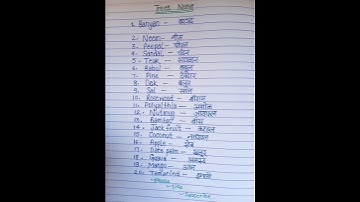 Tree Name
1. Banyan - बरगद
2. Neem - नीम
3. Peepal - पीपल
4. Sandal - चंदन
5. Teak - सागवान
6. Babul - बबूल
7. Pine - देवदार
8. Oak - बलूत
9. Sal - साल
10. Rosewood - शीशम
11. Polyalthia - अशोक
12. Nutmug - जायफल
13. Bamboo - बांस
14. Jackfruit - कटहल
15. Coconut - नारियल
16. Apple - सेब
17. Date palm - खजूर
18. Guava - अमरूद
19. Mango - आम
20. Tamarind - इमली
Like
Subscribe